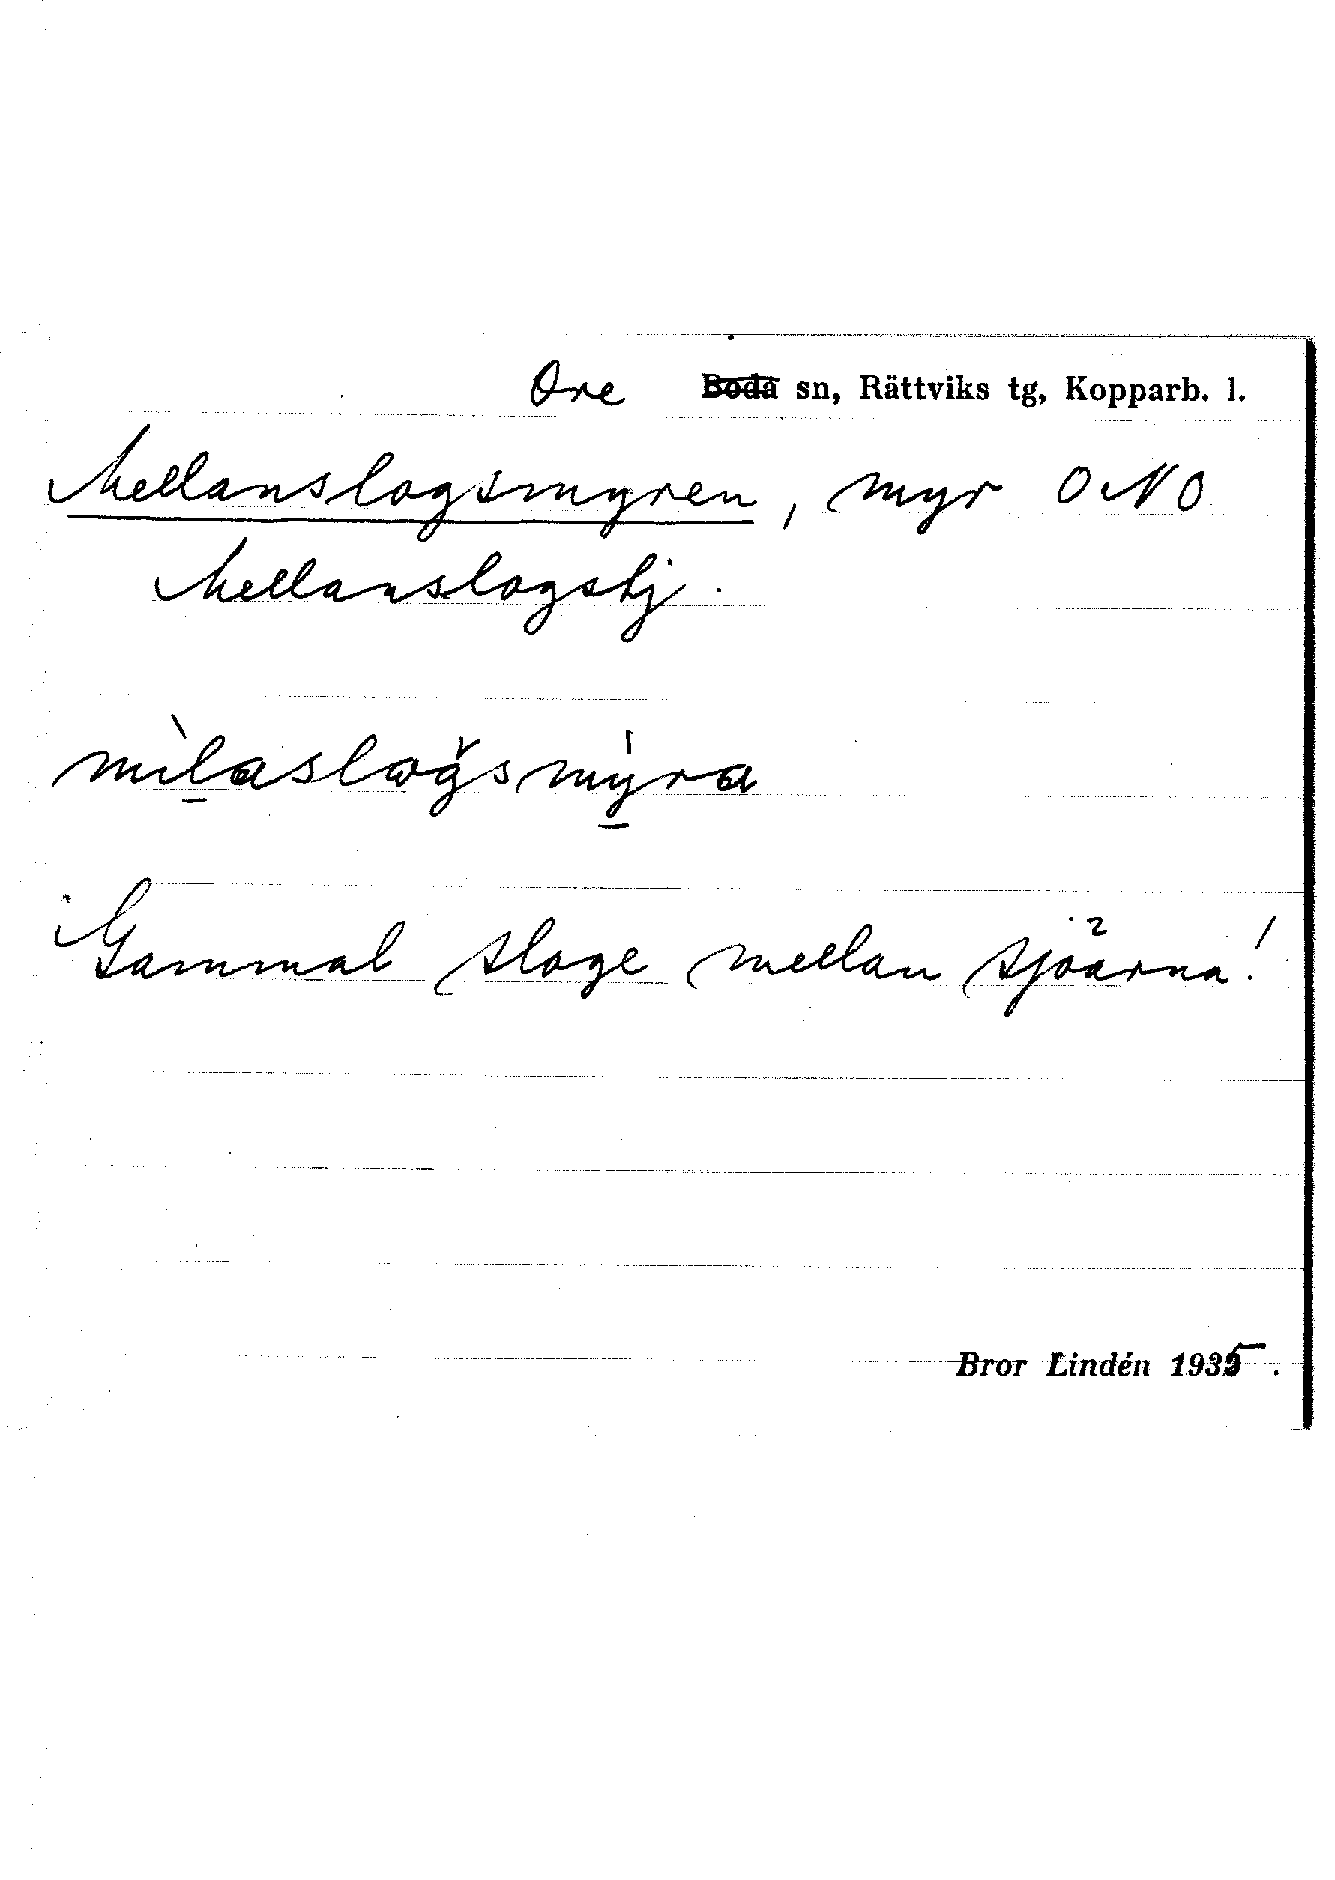 Ore ~~Boda~~ sn, Rättviks tg, Kopparb. l.
Mellanslogsmyren, myr ONO
Mellanslogstj.
mìlaslogsmýra
Gammal sloge mellan sjöarna!
Bror Lindén 1935.